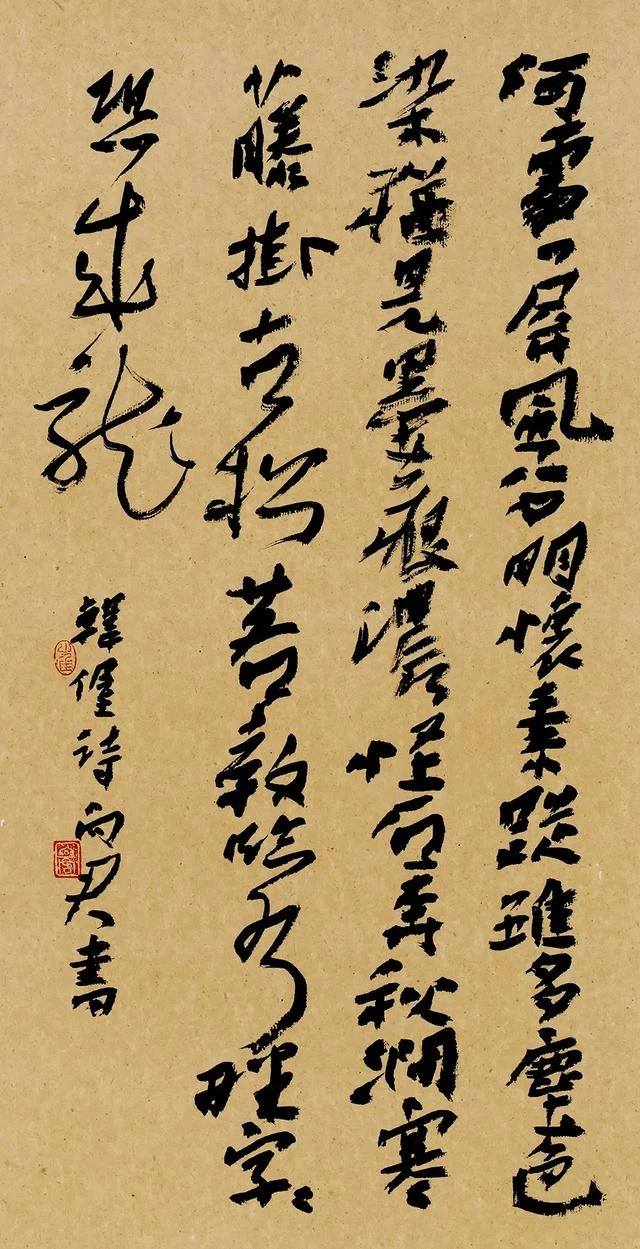 何處一屏風分明懷素蹤雖多塵色
染猶見墨痕濃怪石奔秋澗寒
藤掛古松若教臨水畔字〻
恐成龍
韓偓詩 書